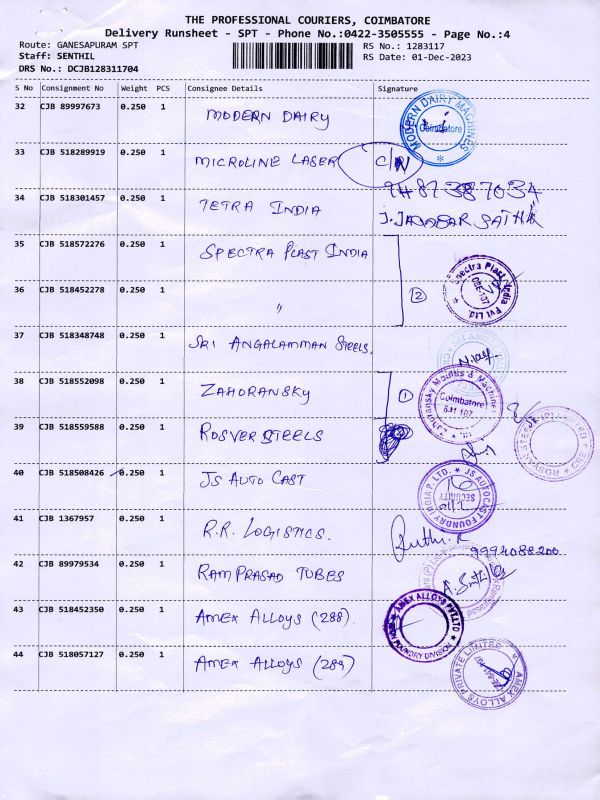 THE PROFESSIONAL COURIERS, COIMBATORE
Delivery Runsheet - SPT - Phone No.:0422-3505555 - Page No.:4
Route: GANESAPURAM SPT RS No.: 1283117
Staff: SENTHIL RS Date: 01-Dec-2023
DRS No.: DCJB128311704
S No Consignment No Weight PCS Consignee Details Signature
32 CJB 89997673 0.250 1 MODERN DAIRY
MODERN DAIRY MACHINES Coimbatore
33 CJB 518289919 0.250 1 MICROLINE LASER
9487387034
34 CJB 518301457 0.250 1 TETRA INDIA
35 CJB 518572276 0.250 1 SPECTRA PLAST INDIA
Spectra Plast India Pvt Ltd.
36 CJB 518452278 0.250 1 "
2
37 CJB 518348748 0.250 1 SRI ANGALAMMAN STEELS.
38 CJB 518552098 0.250 1 ZAHORANSKY
1
Zahoransky Moulds & Machines Coimbatore 641 107
39 CJB 518559588 0.250 1 ROSVER STEELS
40 CJB 518508426 0.250 1 JS AUTO CAST
JS AUTOCAST FOUNDRY INDIA P. LTD. SECURITY
41 CJB 1367957 0.250 1 R.R. LOGISTICS.
Ruthi. R
9994088200
42 CJB 89979534 0.250 1 RAMPRASAD TUBES
43 CJB 518452350 0.250 1 AMEX ALLOYS (288).
AMEX ALLOYS PVT LTD FOUNDRY DIVISION
44 CJB 518057127 0.250 1 AMEX ALLOYS (289)
AMEX ALLOYS PRIVATE LIMITED